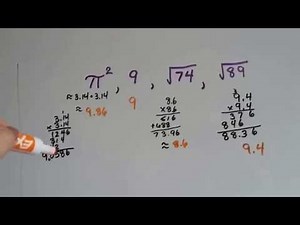 π², 9, √74, √89
≈3.14×3.14
≈ 9.86
9
3.14
× 3.14
1246
314
8.6
×86
516
+688
73.96
≈8.6
9.4
×9.4
376
846
88.36
9.4